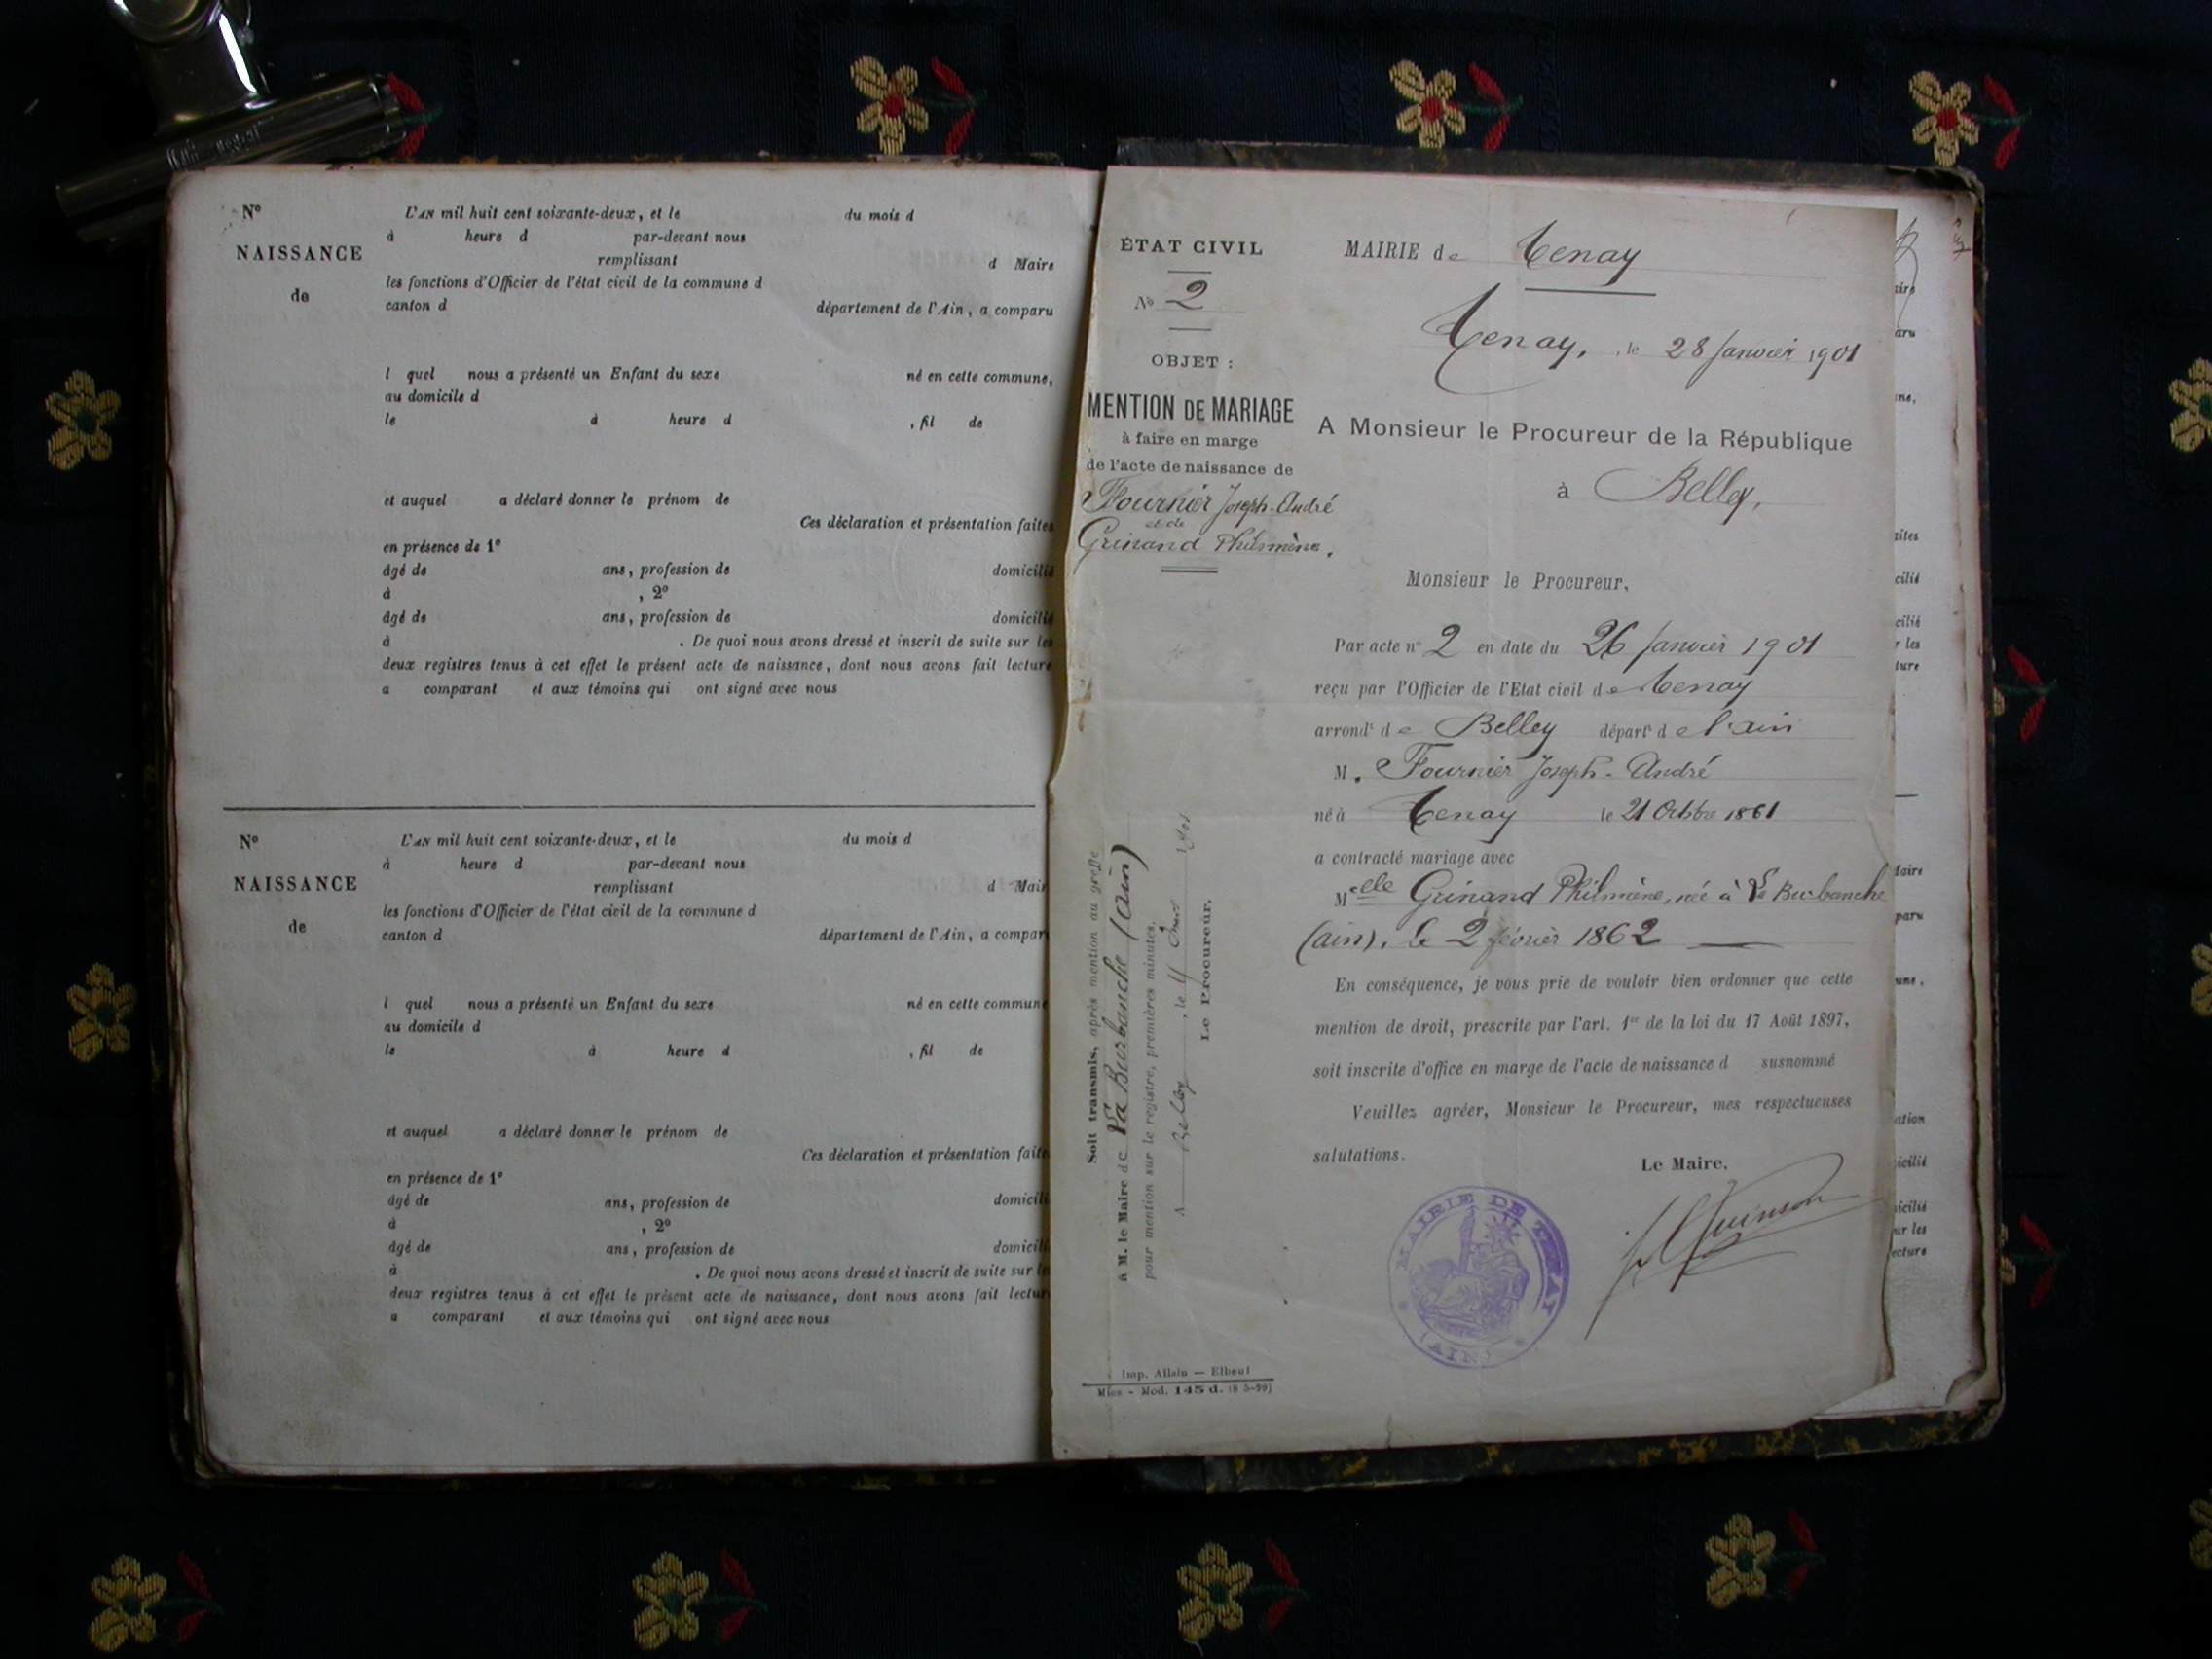 N° L'AN mil huit cent soixante-deux, et le du mois d
à heure d par-devant nous
NAISSANCE remplissant d Maire
les fonctions d'Officier de l'état civil de la commune d
de
canton d département de l'Ain, a comparu
l quel nous a présenté un Enfant du sexe né en cette commune,
au domicile d
le à heure d , fil de
et auquel a déclaré donner le prénom de
Ces déclaration et présentation faites
en présence de 1°
âgé de ans, profession de domicilié
à , 2°
âgé de ans, profession de domicilié
à . De quoi nous avons dressé et inscrit de suite sur les
deux registres tenus à cet effet le présent acte de naissance, dont nous avons fait lecture
a comparant et aux témoins qui ont signé avec nous
N° L'AN mil huit cent soixante-deux, et le du mois d
à heure d par-devant nous
NAISSANCE remplissant d Mair
les fonctions d'Officier de l'état civil de la commune d
de
canton d département de l'Ain, a compar
l quel nous a présenté un Enfant du sexe né en cette commune
au domicile d
le à heure d , fil de
et auquel a déclaré donner le prénom de
Ces déclaration et présentation faite
en présence de 1°
âgé de ans, profession de domicili
à , 2°
âgé de ans, profession de domicili
à . De quoi nous avons dressé et inscrit de suite sur le
deux registres tenus à cet effet le présent acte de naissance, dont nous avons fait lectur
a comparant et aux témoins qui ont signé avec nous
ÉTAT CIVIL
N° 2
OBJET :
MENTION DE MARIAGE
à faire en marge
de l'acte de naissance de
Fournier Joseph-André
et de
Grinand Philomène.
Soit transmis, après mention au greffe
A M. le Maire de La Burbanche (Ain)
pour mention sur le registre, premières minutes.
A Belley, le
Le Procureur.
Imp. Allain — Elbeuf
Mies - Mod. 145 d. (8-5-99)
MAIRIE de Tenay
Tenay, le 28 Janvier 1901
A Monsieur le Procureur de la République
à Belley,
Monsieur le Procureur,
Par acte n° 2 en date du 26 Janvier 1901
reçu par l'Officier de l'Etat civil de Tenay
arrondt de Belley départt de l'ain
M. Fournier Joseph-André
né à Tenay le 21 Octbre 1861
a contracté mariage avec
Melle Grinand Philomène, née à La Burbanche
(ain), le 2 février 1862
En conséquence, je vous prie de vouloir bien ordonner que cette
mention de droit, prescrite par l'art. 1er de la loi du 17 Août 1897,
soit inscrite d'office en marge de l'acte de naissance d susnommé
Veuillez agréer, Monsieur le Procureur, mes respectueuses
salutations.
Le Maire,
MAIRIE DE TENAY
(AIN)